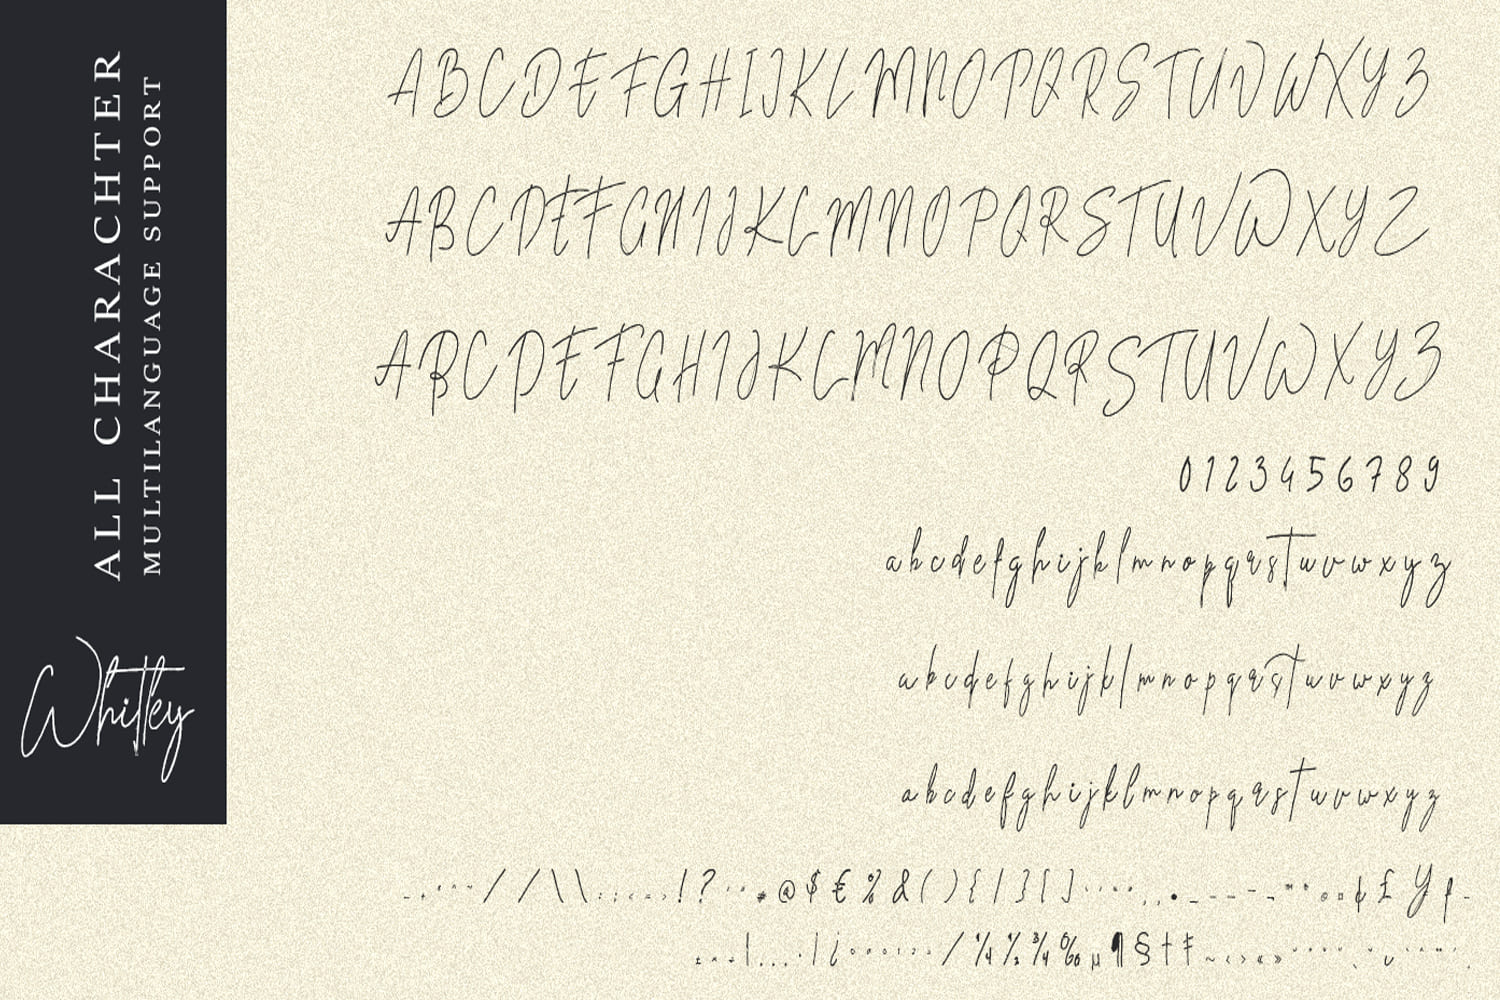 ALL CHARACHTER
MULTILANGUAGE SUPPORT
Whitley
ABCDEFGHIJKLMNOPQRSTUVWXYZ
ABCDEFGHIJKLMNOPQRSTUVWXYZ
ABCDEFGHIJKLMNOPQRSTUVWXYZ
0123456789
abcdefghijklmnopqrstuvwxyz
abcdefghijklmnopqrstuvwxyz
abcdefghijklmnopqrstuvwxyz
//\\ !? @$€%&(){|}[] ¢£
/¼½¾‰µ¶§†‡